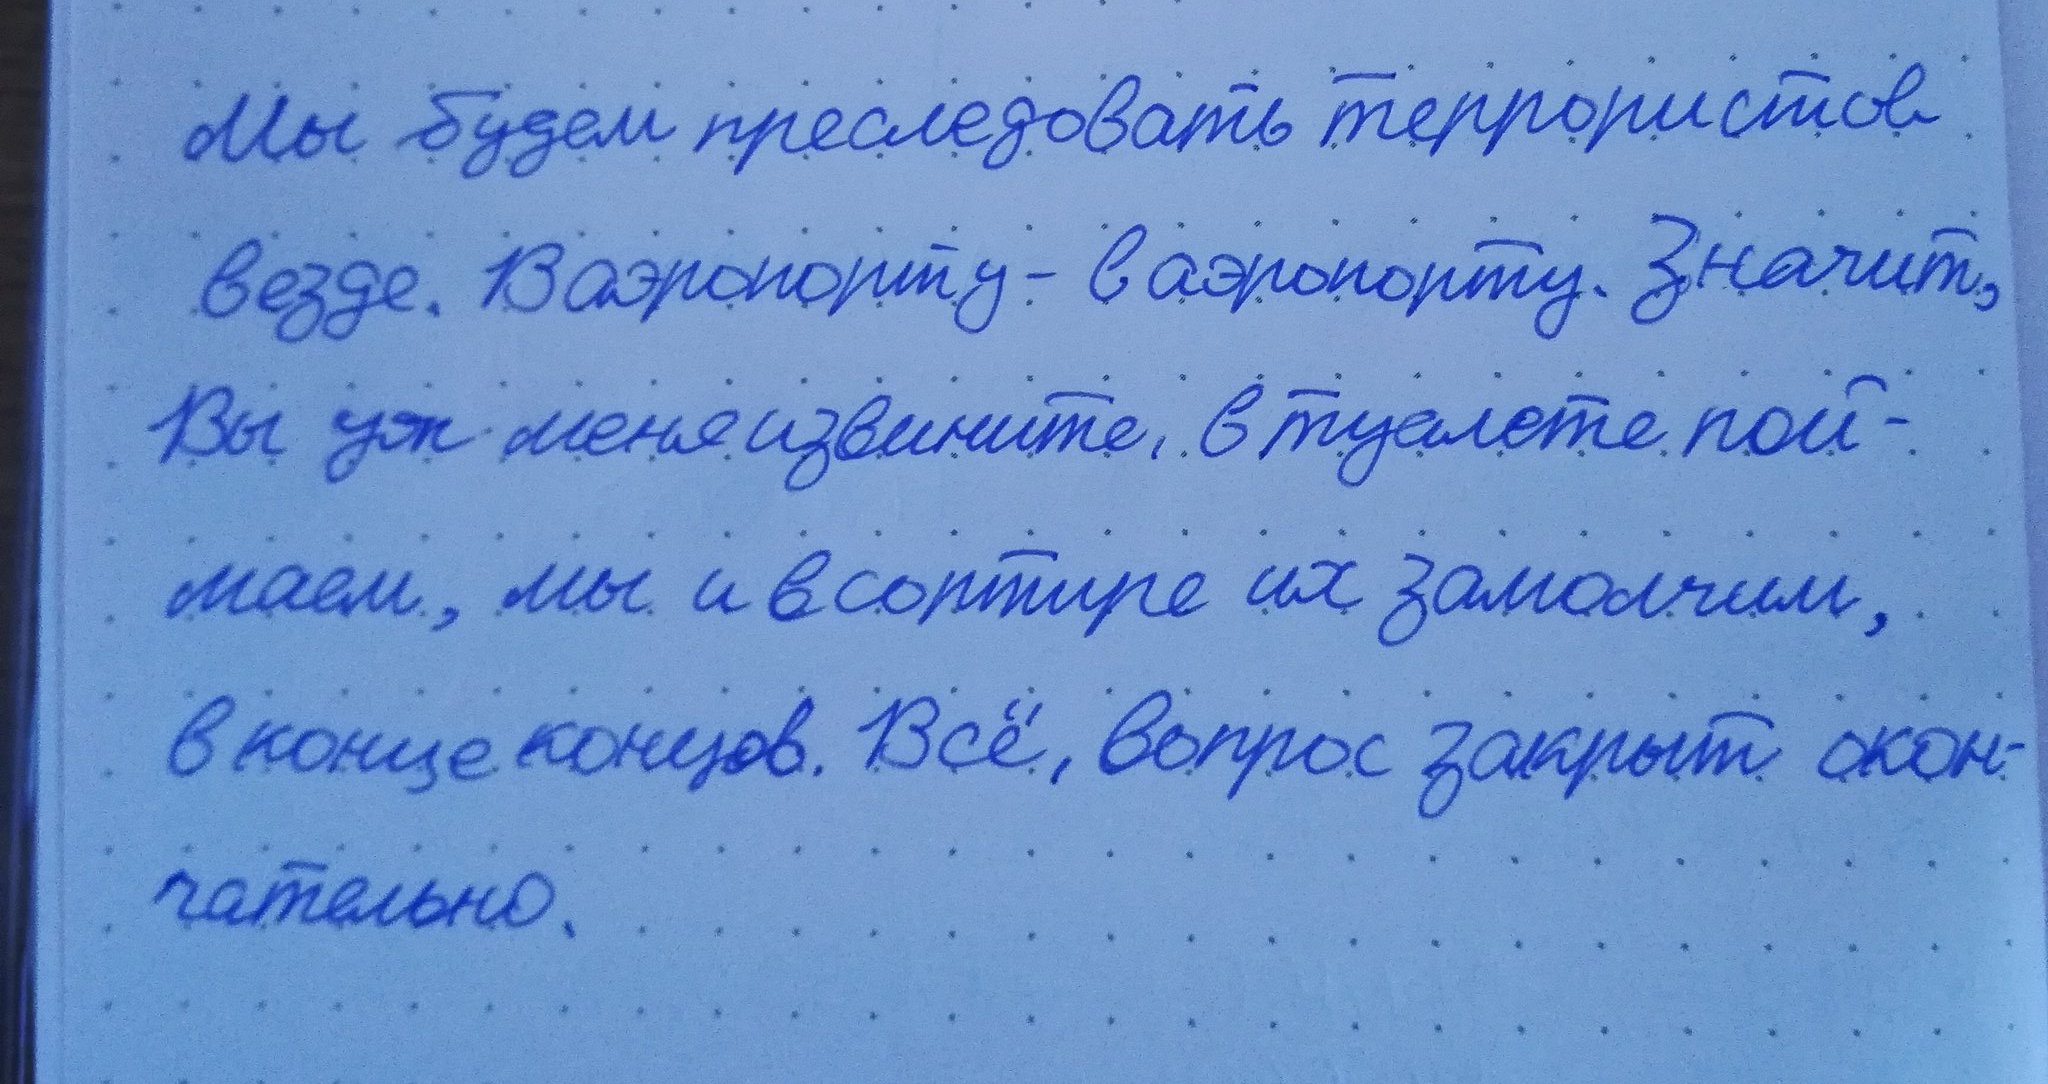 Мы будем преследовать террористов
везде. В аэропорту - в аэропорту. Значит,
Вы уж меня извините, в туалете пой-
маем, мы и в сортире их замолчим,
в конце концов. Всё, вопрос закрыт окон-
чательно.